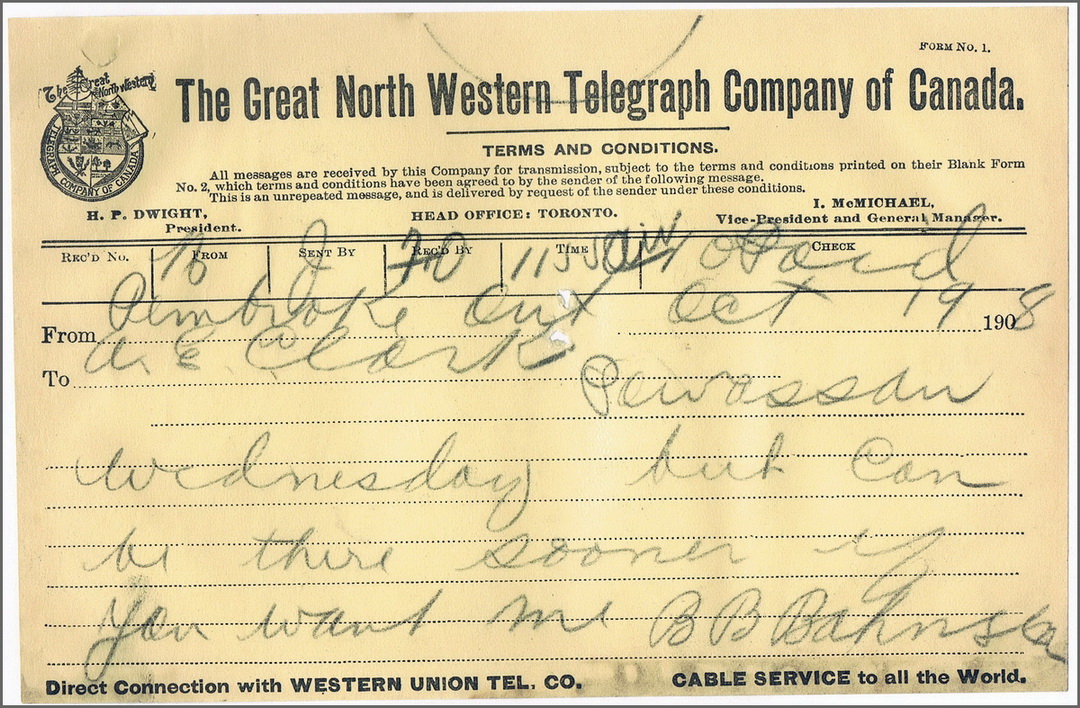 FORM NO. 1.
The Great North Western
TELEGRAPH COMPANY OF CANADA
The Great North Western Telegraph Company of Canada.
TERMS AND CONDITIONS.
All messages are received by this Company for transmission, subject to the terms and conditions printed on their Blank Form
No. 2, which terms and conditions have been agreed to by the sender of the following message.
This is an unrepeated message, and is delivered by request of the sender under these conditions.
H. P. DWIGHT,
President.
HEAD OFFICE: TORONTO.
I. McMICHAEL,
Vice-President and General Manager.
REC'D NO. FROM SENT BY REC'D BY TIME CHECK
10 Paid
From Pembroke Ont Oct 19 1908
To A. E. Clark
Powassan
Wednesday but can
be there sooner if
you want me B B Bahnsen
Direct Connection with WESTERN UNION TEL. CO. CABLE SERVICE to all the World.